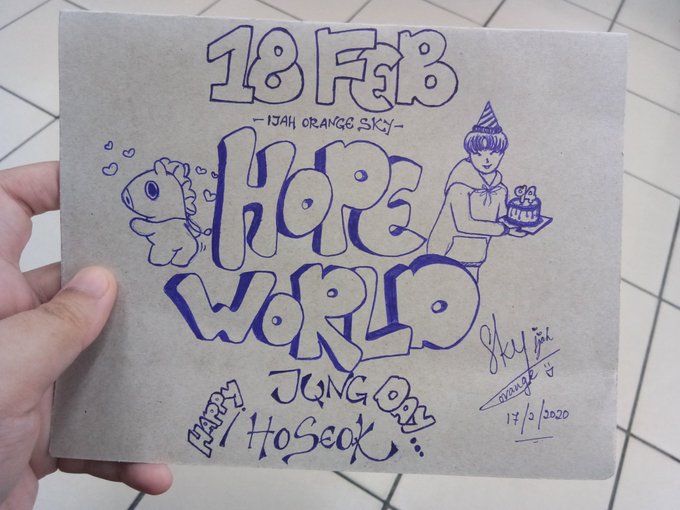 18 FEB
- IJAH ORANGE SKY -
HOPE
WORLD
HAPPY!
JUNG
HOSEOK
DAY...
Sky ijah
orange
17/2/2020